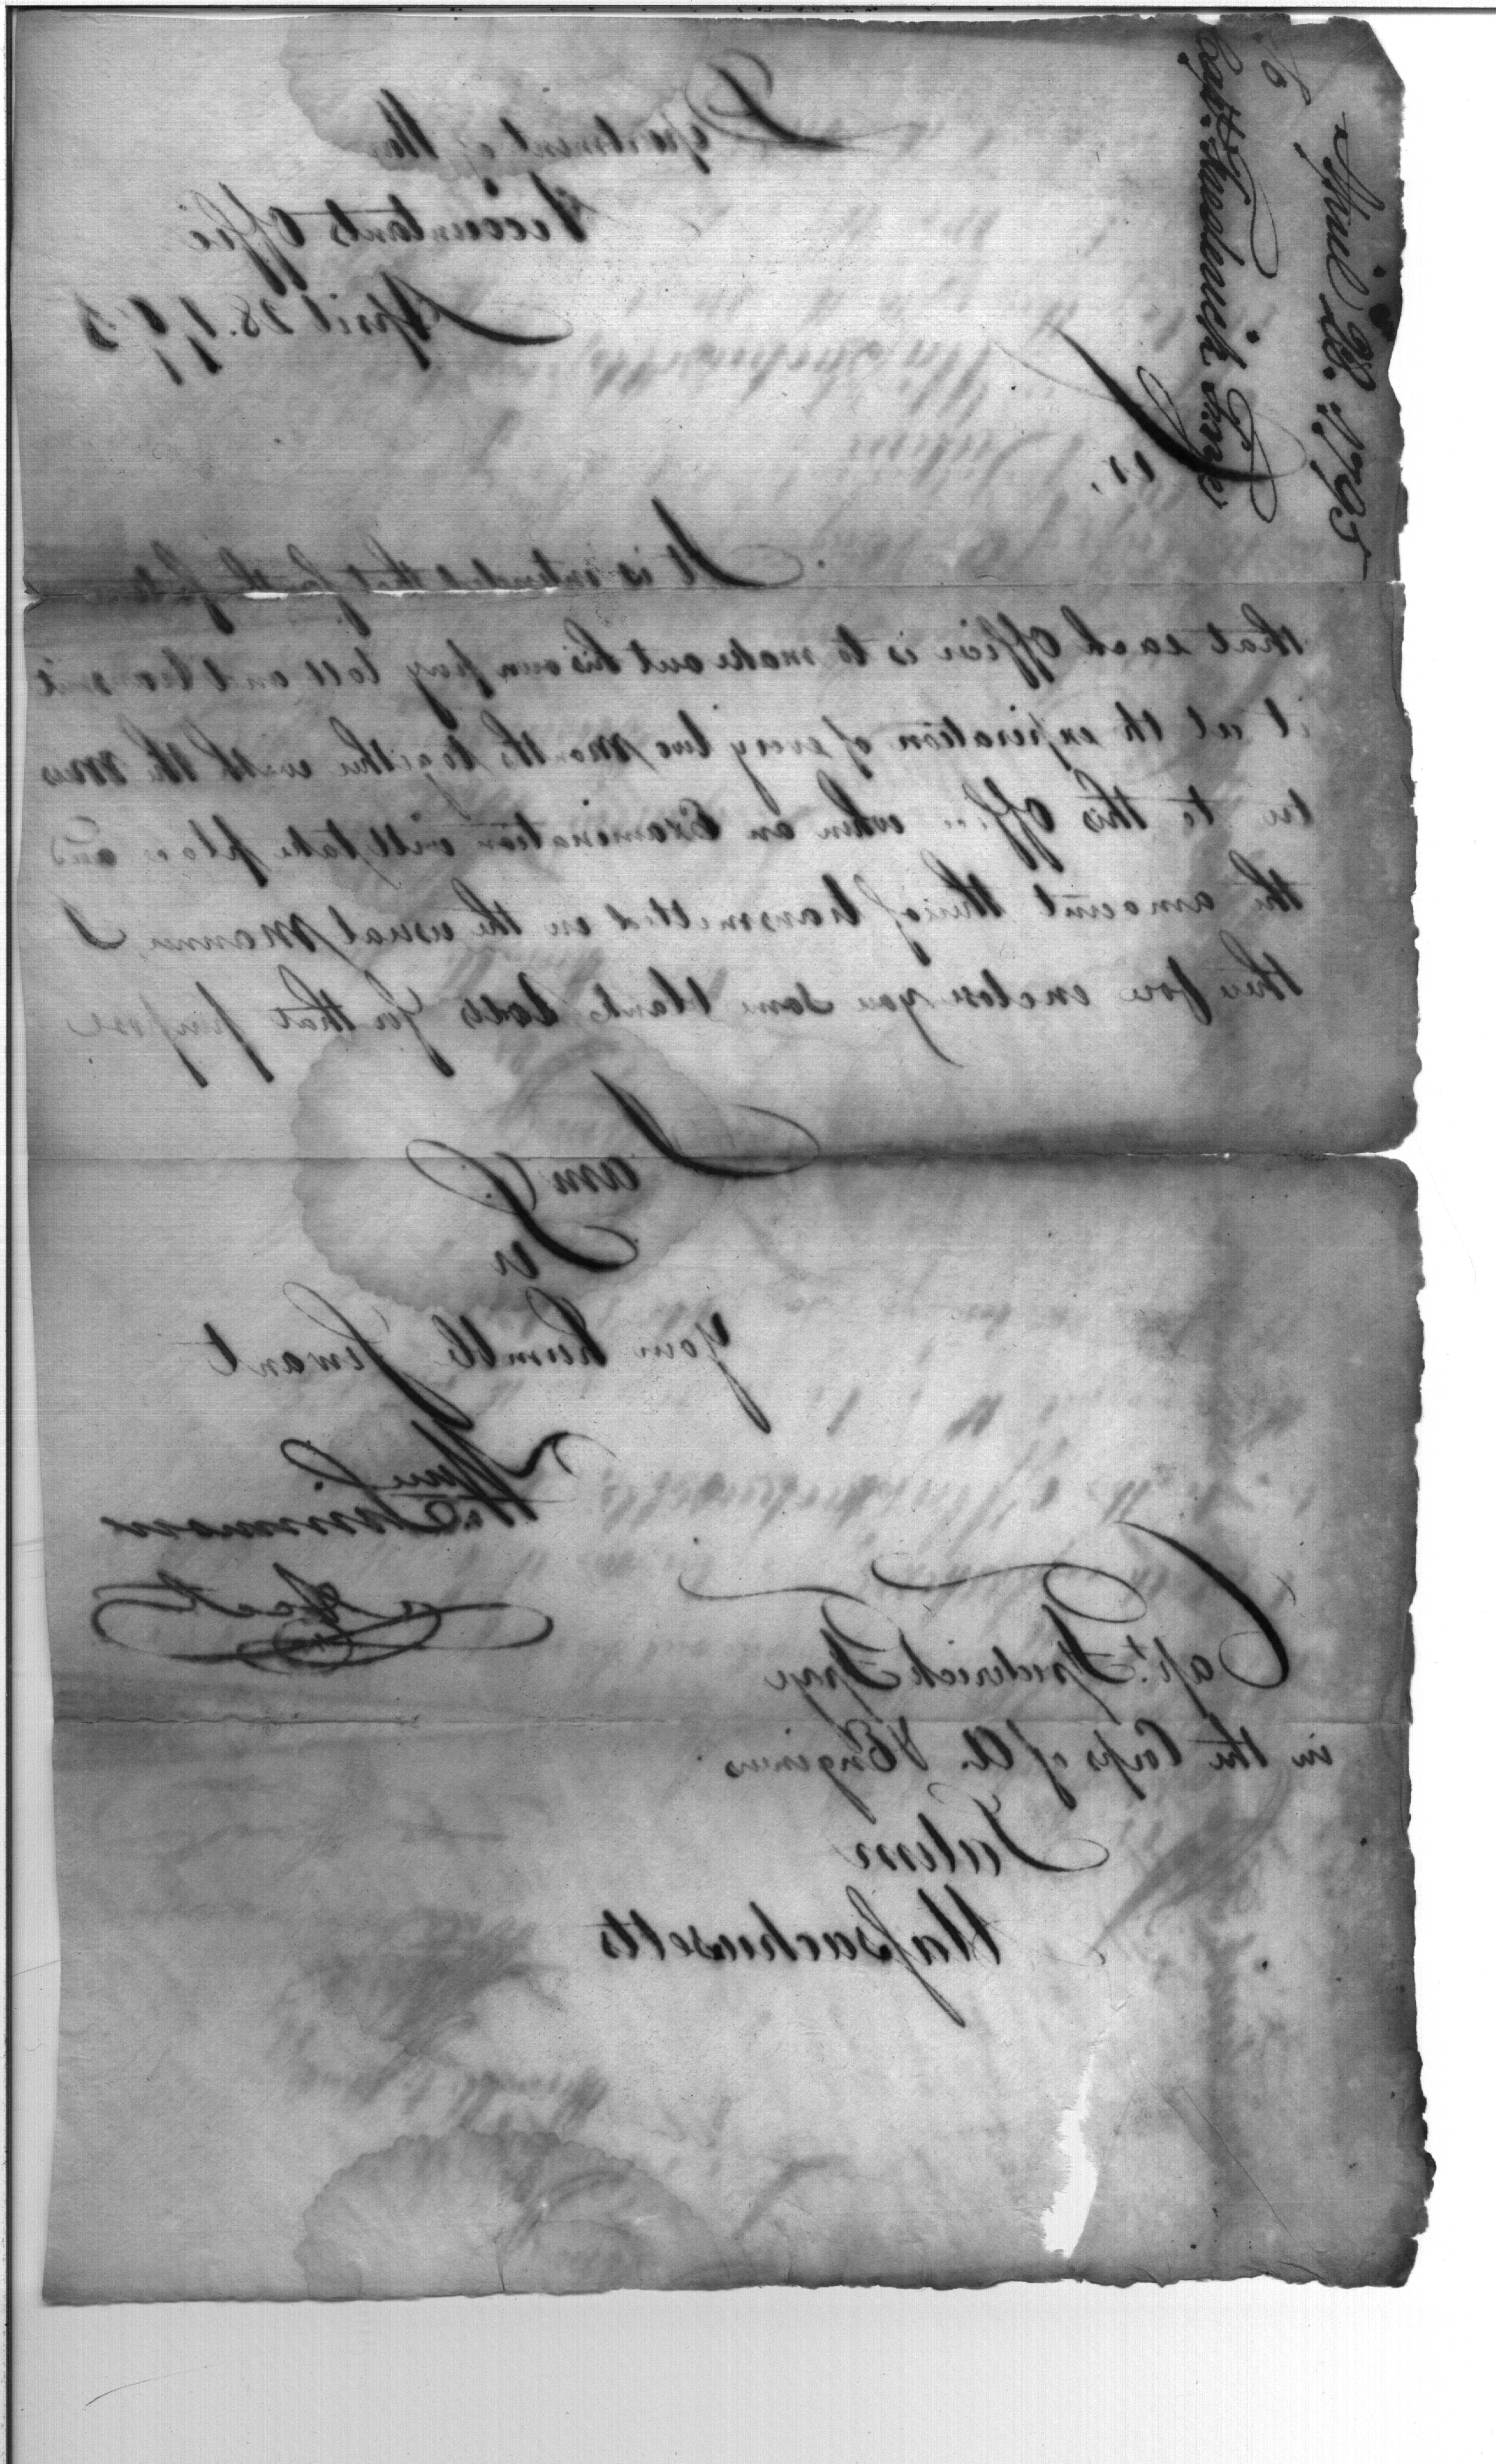 To
Capt. Frederick Frye
April 28. 1795
Department of War
Accountants Office
April 28. 1795
Sir,
It is intended that for the future
that each Officer is to make out his own pay roll and transmit
it at the expiration of every two Months together with the Mus
ter to this Office when an Examination will take place and
the amount thereof transmitted in the usual Manner, I
therefore enclose you some blank rolls for that purpose
I am
Sir
Your humble Servant
Wm Simmons
Acct
Capt. Frederick Frye
in the Corps of A. & Engineers
Salem
Massachusetts